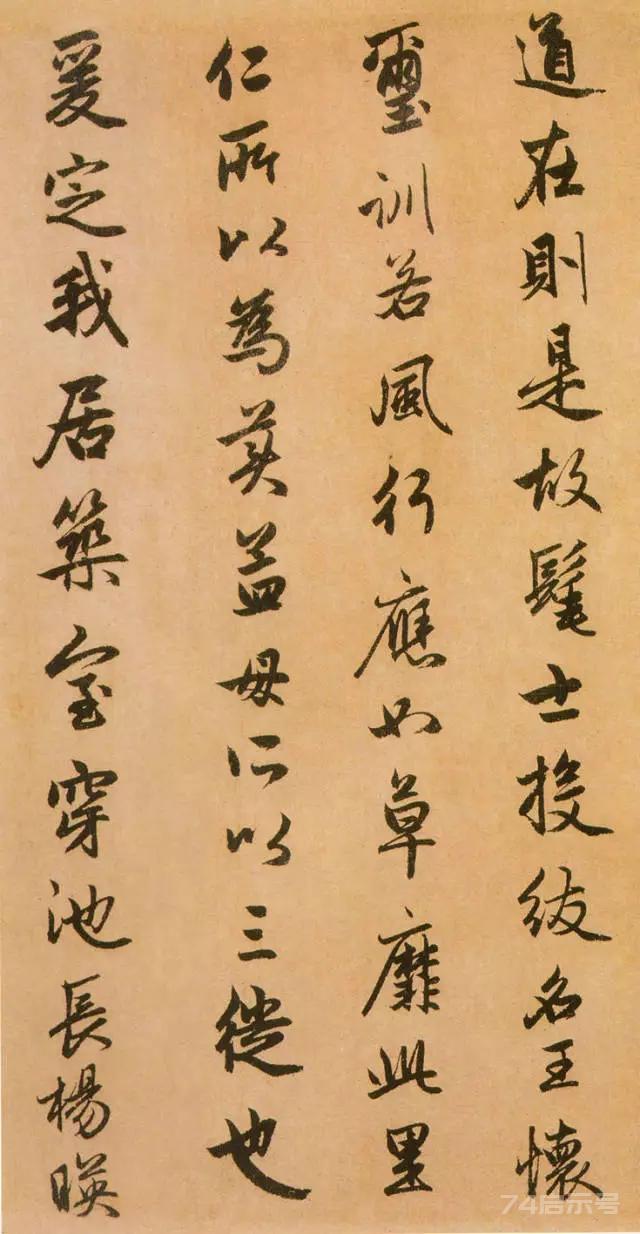 道在則是故髦士投紱名王懷
璽訓若風行應如草靡此里
仁所以為美孟母所以三徙也
爰定我居築室穿池長楊映
74启示号